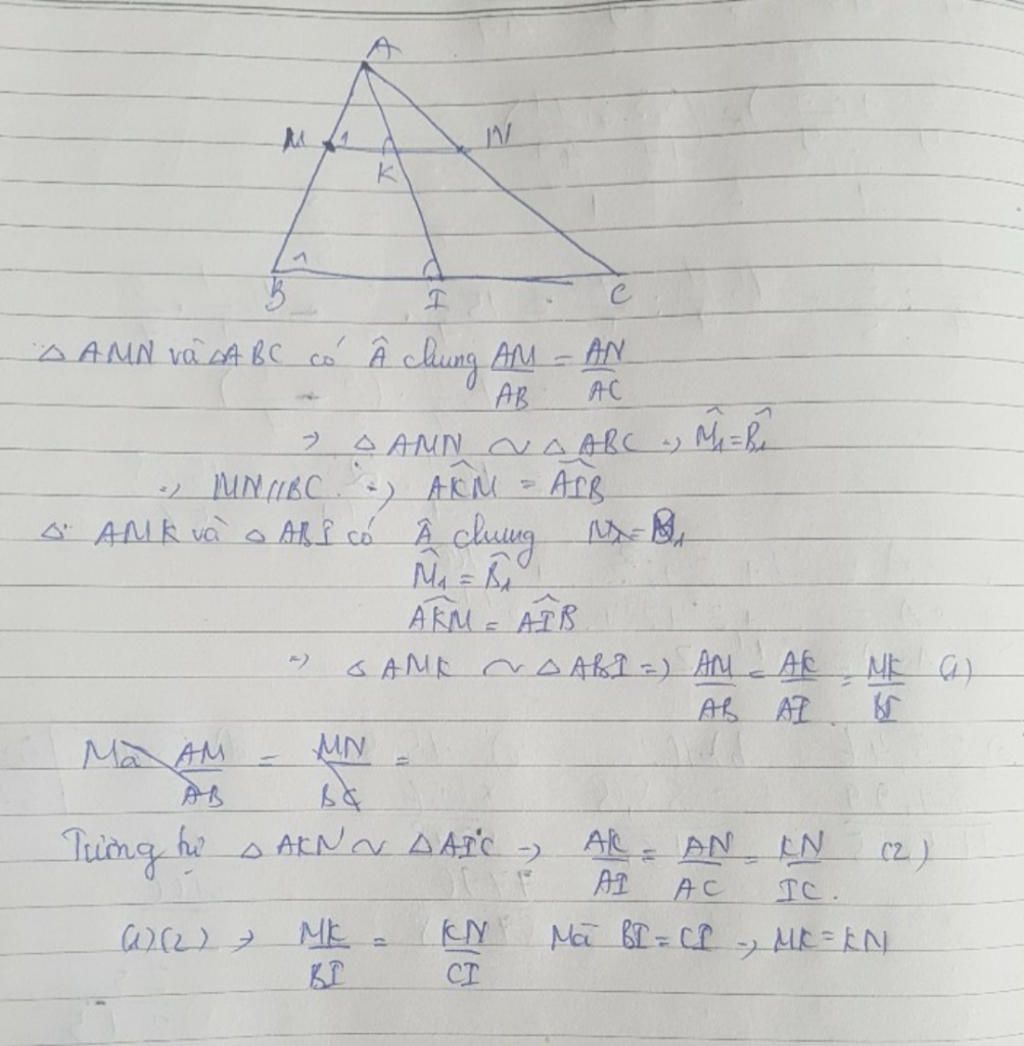 A
M 1 N
K
1
B I C
△ AMN và △ABC có Â chung AM/AB = AN/AC
=> △ AMN ~ △ ABC => M̂₁ = B̂₁
=> MN//BC => AKM̂ = AIB̂
△ AMK và △ ABI có Â chung
M̂₁ = B̂₁
AKM̂ = AIB̂
=> △ AMK ~ △ ABI => AM/AB = AK/AI = MK/BI (1)
Mà AM/AB = MN/BC =
Tương tự △ AKN ~ △AIC => AK/AI = AN/AC = KN/IC. (2)
(1)(2) => MK/BI = KN/CI Mà BI = CI => MK = KN